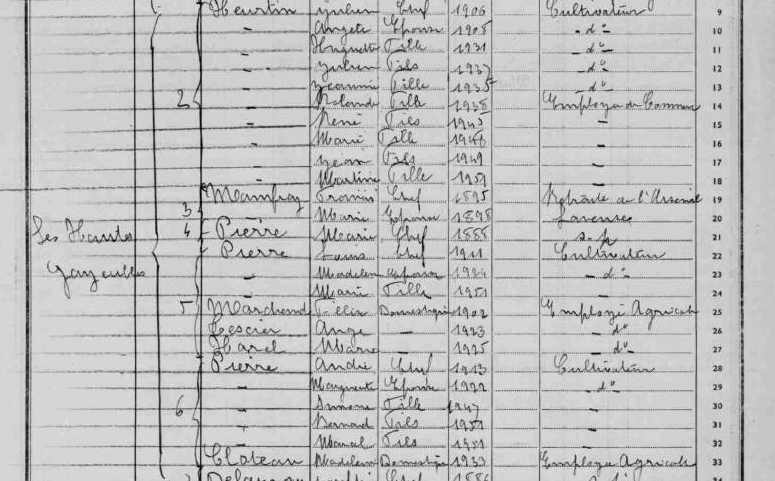 Heurtin Julien Chef 1906 Cultivateur 9
" Angèle Epouse 1905 - d° - 10
" Huguette Fille 1931 - d° - 11
" Julien Fils 1937 - d° - 12
" Jeannine Fille 1935 - d° - 13
2 " Rolande Fille 1938 14
" René Fils 1945 - 15
" Marie Fille 1948 - 16
" Jean Fils 1949 - 17
" Martine Fille 1951 - 18
Chef 1895 Retraité de l'Arsenal 19
3 " Marie Epouse 1898 20
Les Hauts 4 Pierre Marie Chef 1888 s. p. 21
Pierre Louis Chef 1911 Cultivateur 22
" Madeleine Epouse 1924 - d° - 23
" Marie Fille 1951 - 24
5 Marchand Domestique 1902 Employé Agricole 25
Tescier Ange - 1923 - d° - 26
Harel Marie 1925 - d° - 27
Pierre André Chef 1913 Cultivateur 28
" Marguerite Epouse 1922 - d° - 29
6 " Simone Fille 1947 - 30
" Bernard Fils 1951 - 31
" Fils 1951 - 32
Madeleine Domestique 1933 Employée Agricole 33